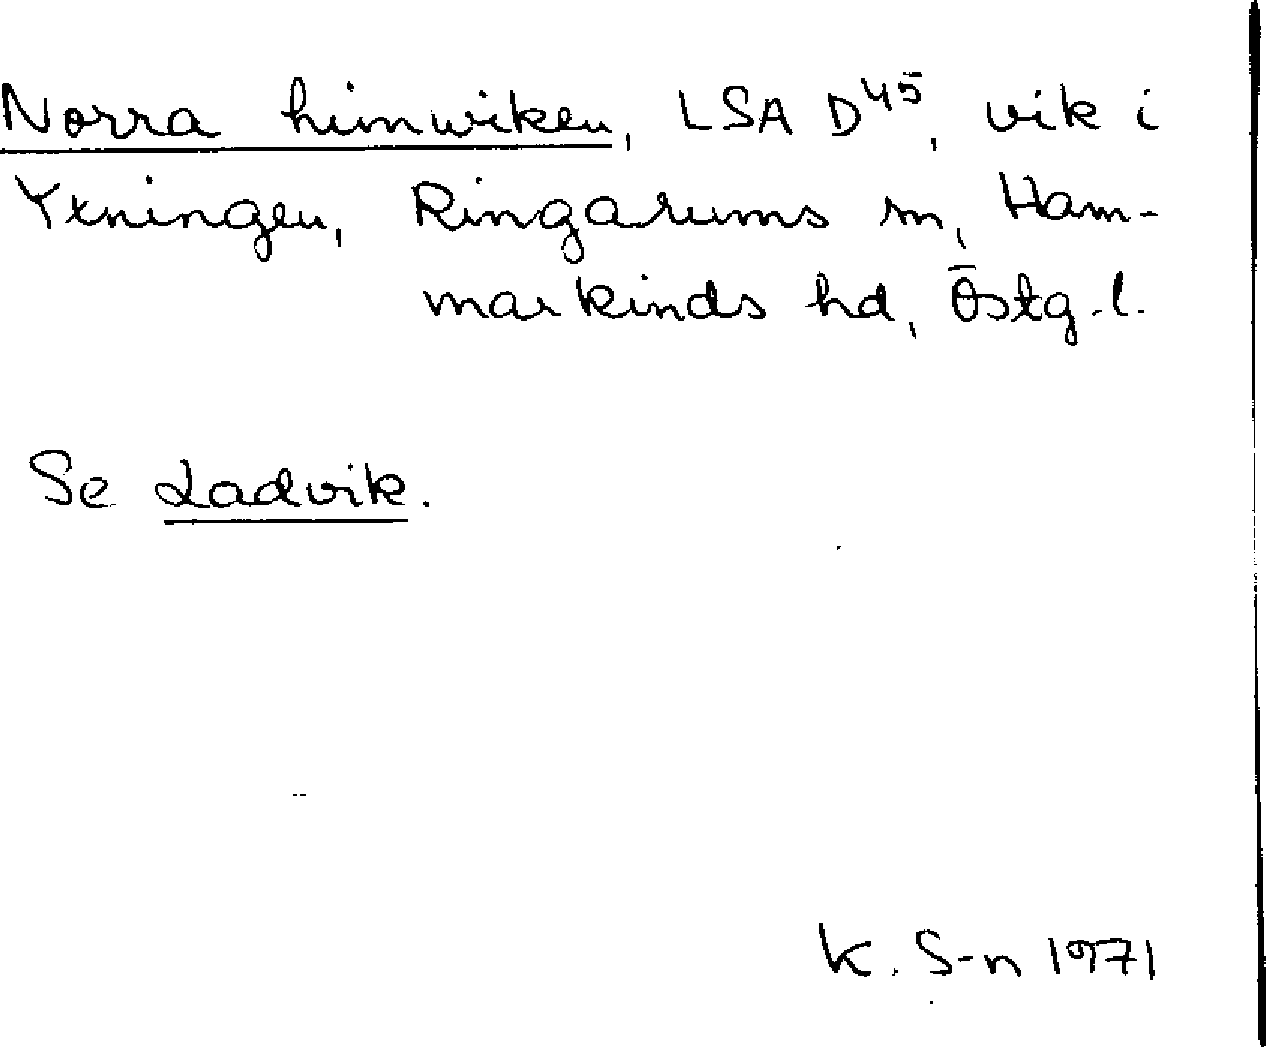 Norra himwiken, LSA D45, vik i
Yxningen, Ringarums sn, Ham-
markinds hd, Östg.l.
Se Ladvik.
K. S-n 1971